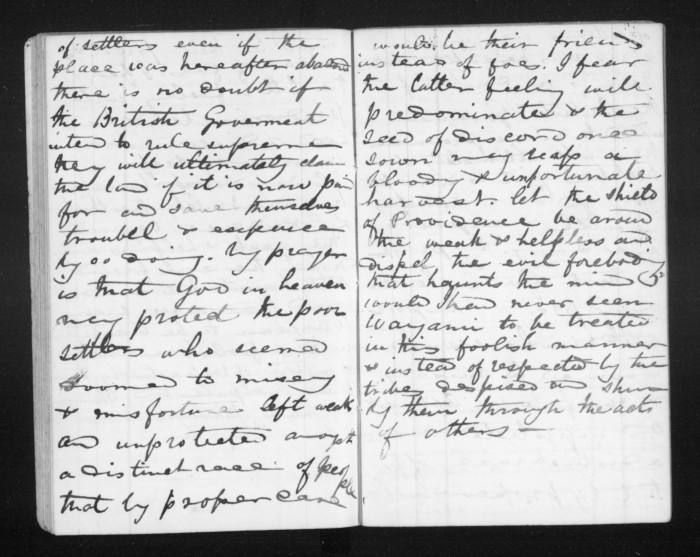 of settlers even if the
place was hereafter aband
there is no doubt if
the British Goverment
inten to rule supreme
they will ultimately claim
the lan if it is now pai
for an save themselves
troubll & expence
by so doing. My prayer
is that God in heaven
may proted the poor
settlers who seemed
doomed to misery
& misfortune left weak
an unprotected amongst
a distinct race of people
that by proper care
would be their friends
insteas of foes. I fear
the latter feeling will
predominate & the
seed of discord once
sown may reap a
bloody & unfortunate
harvest. let the shield
of Providence be aroun
the weak & helpless an
dispel the evil forebodg
that haunts the min
would I had never seen
Waryamii to be treated
in this foolish manner
& instead of respected by the
tribe despised an shun
by them through the acts
of others —